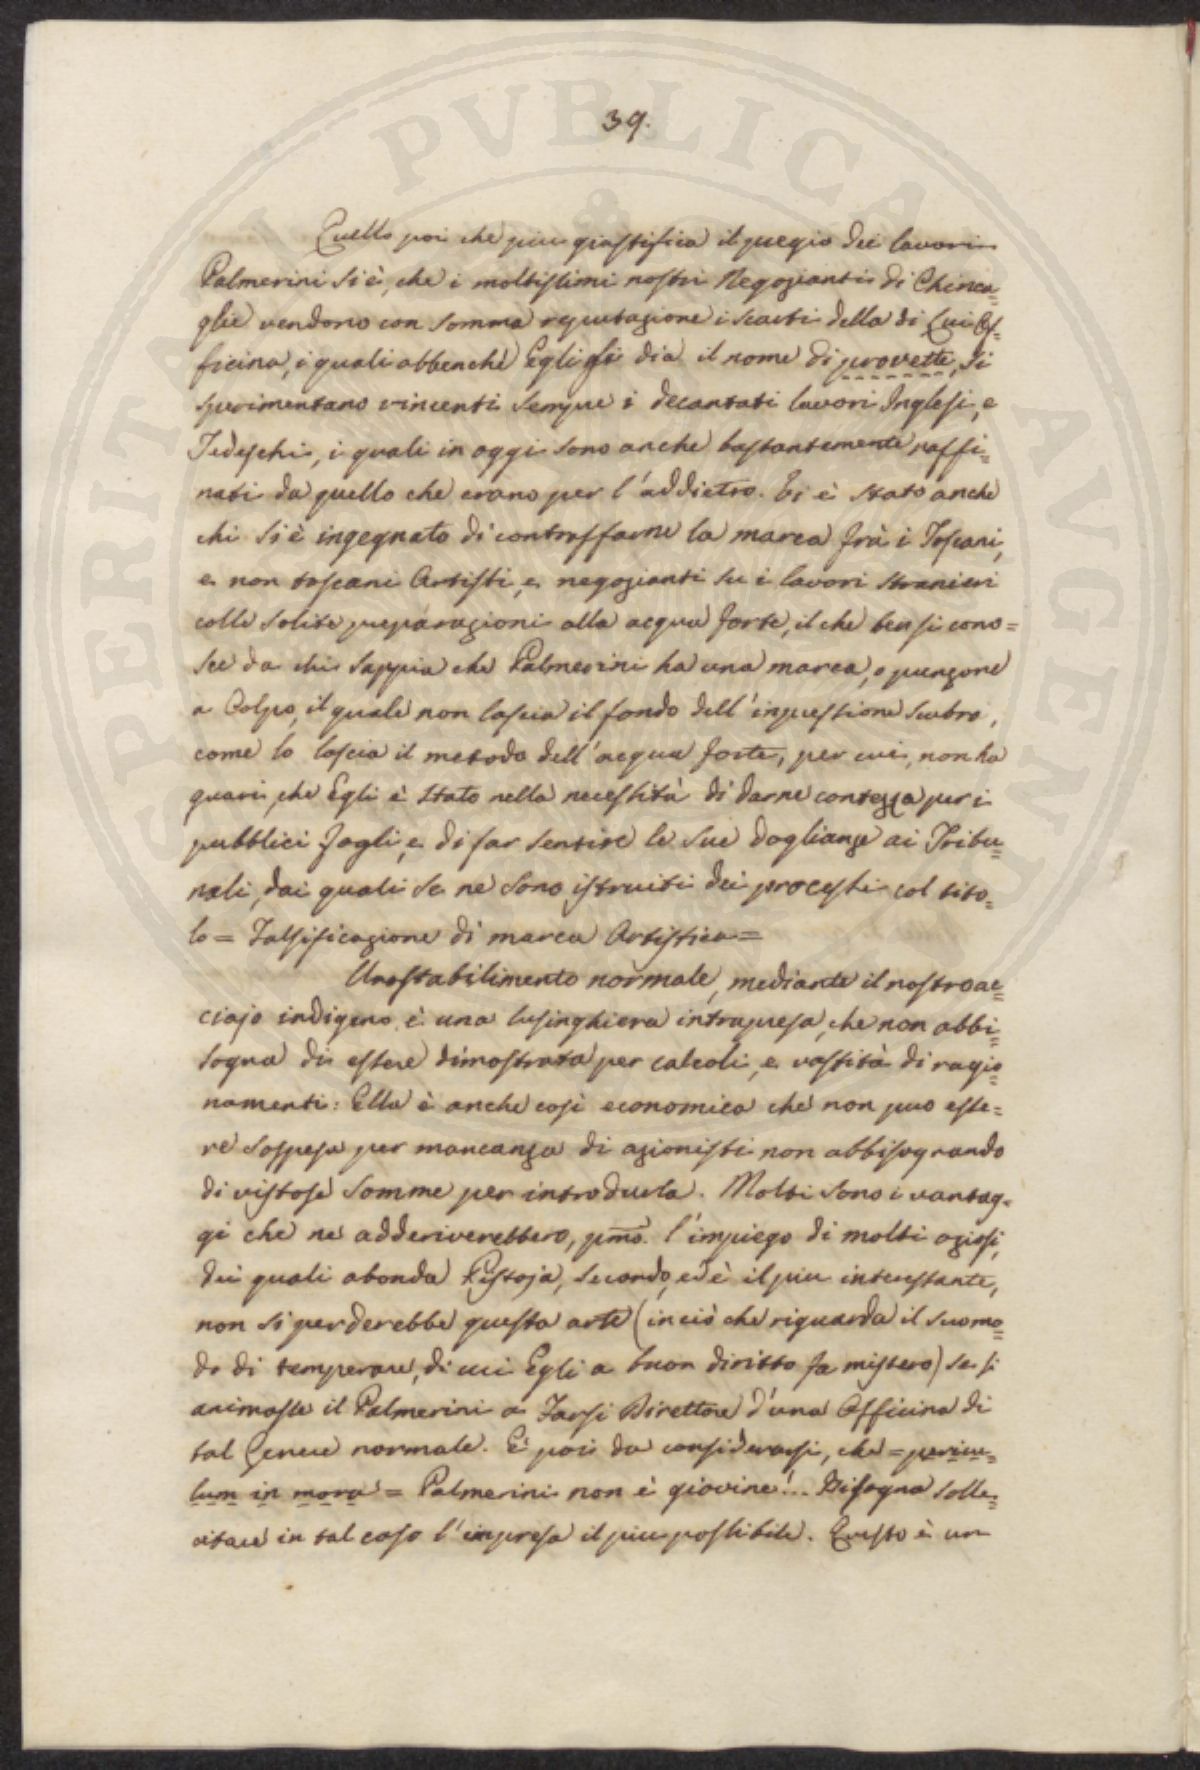 PROSPERITATI PVBLICAE AVGENDAE
39.
Quello poi che piu giustifica il pregio dei lavori
Palmerini si è, che i moltissimi nostri Negozianti di Chinca=
glie vendono con somma reputazione i scarti della di Lui Of=
ficina, i quali abbenchè Egli gli dia il nome di provette, si
sperimentano vincenti sempre i decantati lavori Inglesi, e
Tedeschi, i quali in oggi sono anche bastantemente raffi=
nati da quello che erano per l'addietro. Vi è stato anche
chi si è ingegnato di contraffarne la marca frà i Toscani,
e non toscani Artisti, e negozianti su i lavori stranieri
colle solite preparazioni alla acqua forte, il che ben si cono=
sce da chi sappia che Palmerini ha una marca, o punzone
a Colpo, il quale non lascia il fondo dell'impressione scabro,
come lo lascia il metodo dell'acqua forte, per cui, non ha
guari, che Egli è stato nella necessità di darne contezza per i
pubblici fogli, e di far sentire le sue doglianze ai Tribu=
nali, dai quali se ne sono istruiti dei processi col tito=
lo = Falsificazione di marca Artistica =
Uno stabilimento normale, mediante il nostro ac=
ciajo indigeno, è una lusinghiera intrapresa, che non abbi=
sogna di essere dimostrata per calcoli, e vastità di ragio=
namenti: Ella è anche così economica che non può esse=
re sospesa per mancanza di azionisti non abbisognando
di vistose somme per introdurla. Molti sono i vantag=
gi che ne adderiverebbero, pmo. l'impiego di molti oziosi,
dei quali abonda Pistoja, secondo, ed è il piu interessante,
non si perderebbe questa arte (in ciò che riguarda il suo mo=
do di temperare, di cui Egli a buon diritto fa mistero) se si
animasse il Palmerini a Farsi Direttore d'una Officina di
tal Genere normale. È poi da considerarsi, che = pericu=
lum in mora = Palmerini non è giovine!.. Bisogna solle=
citare in tal caso l'impresa il piu possibile. Questo è un